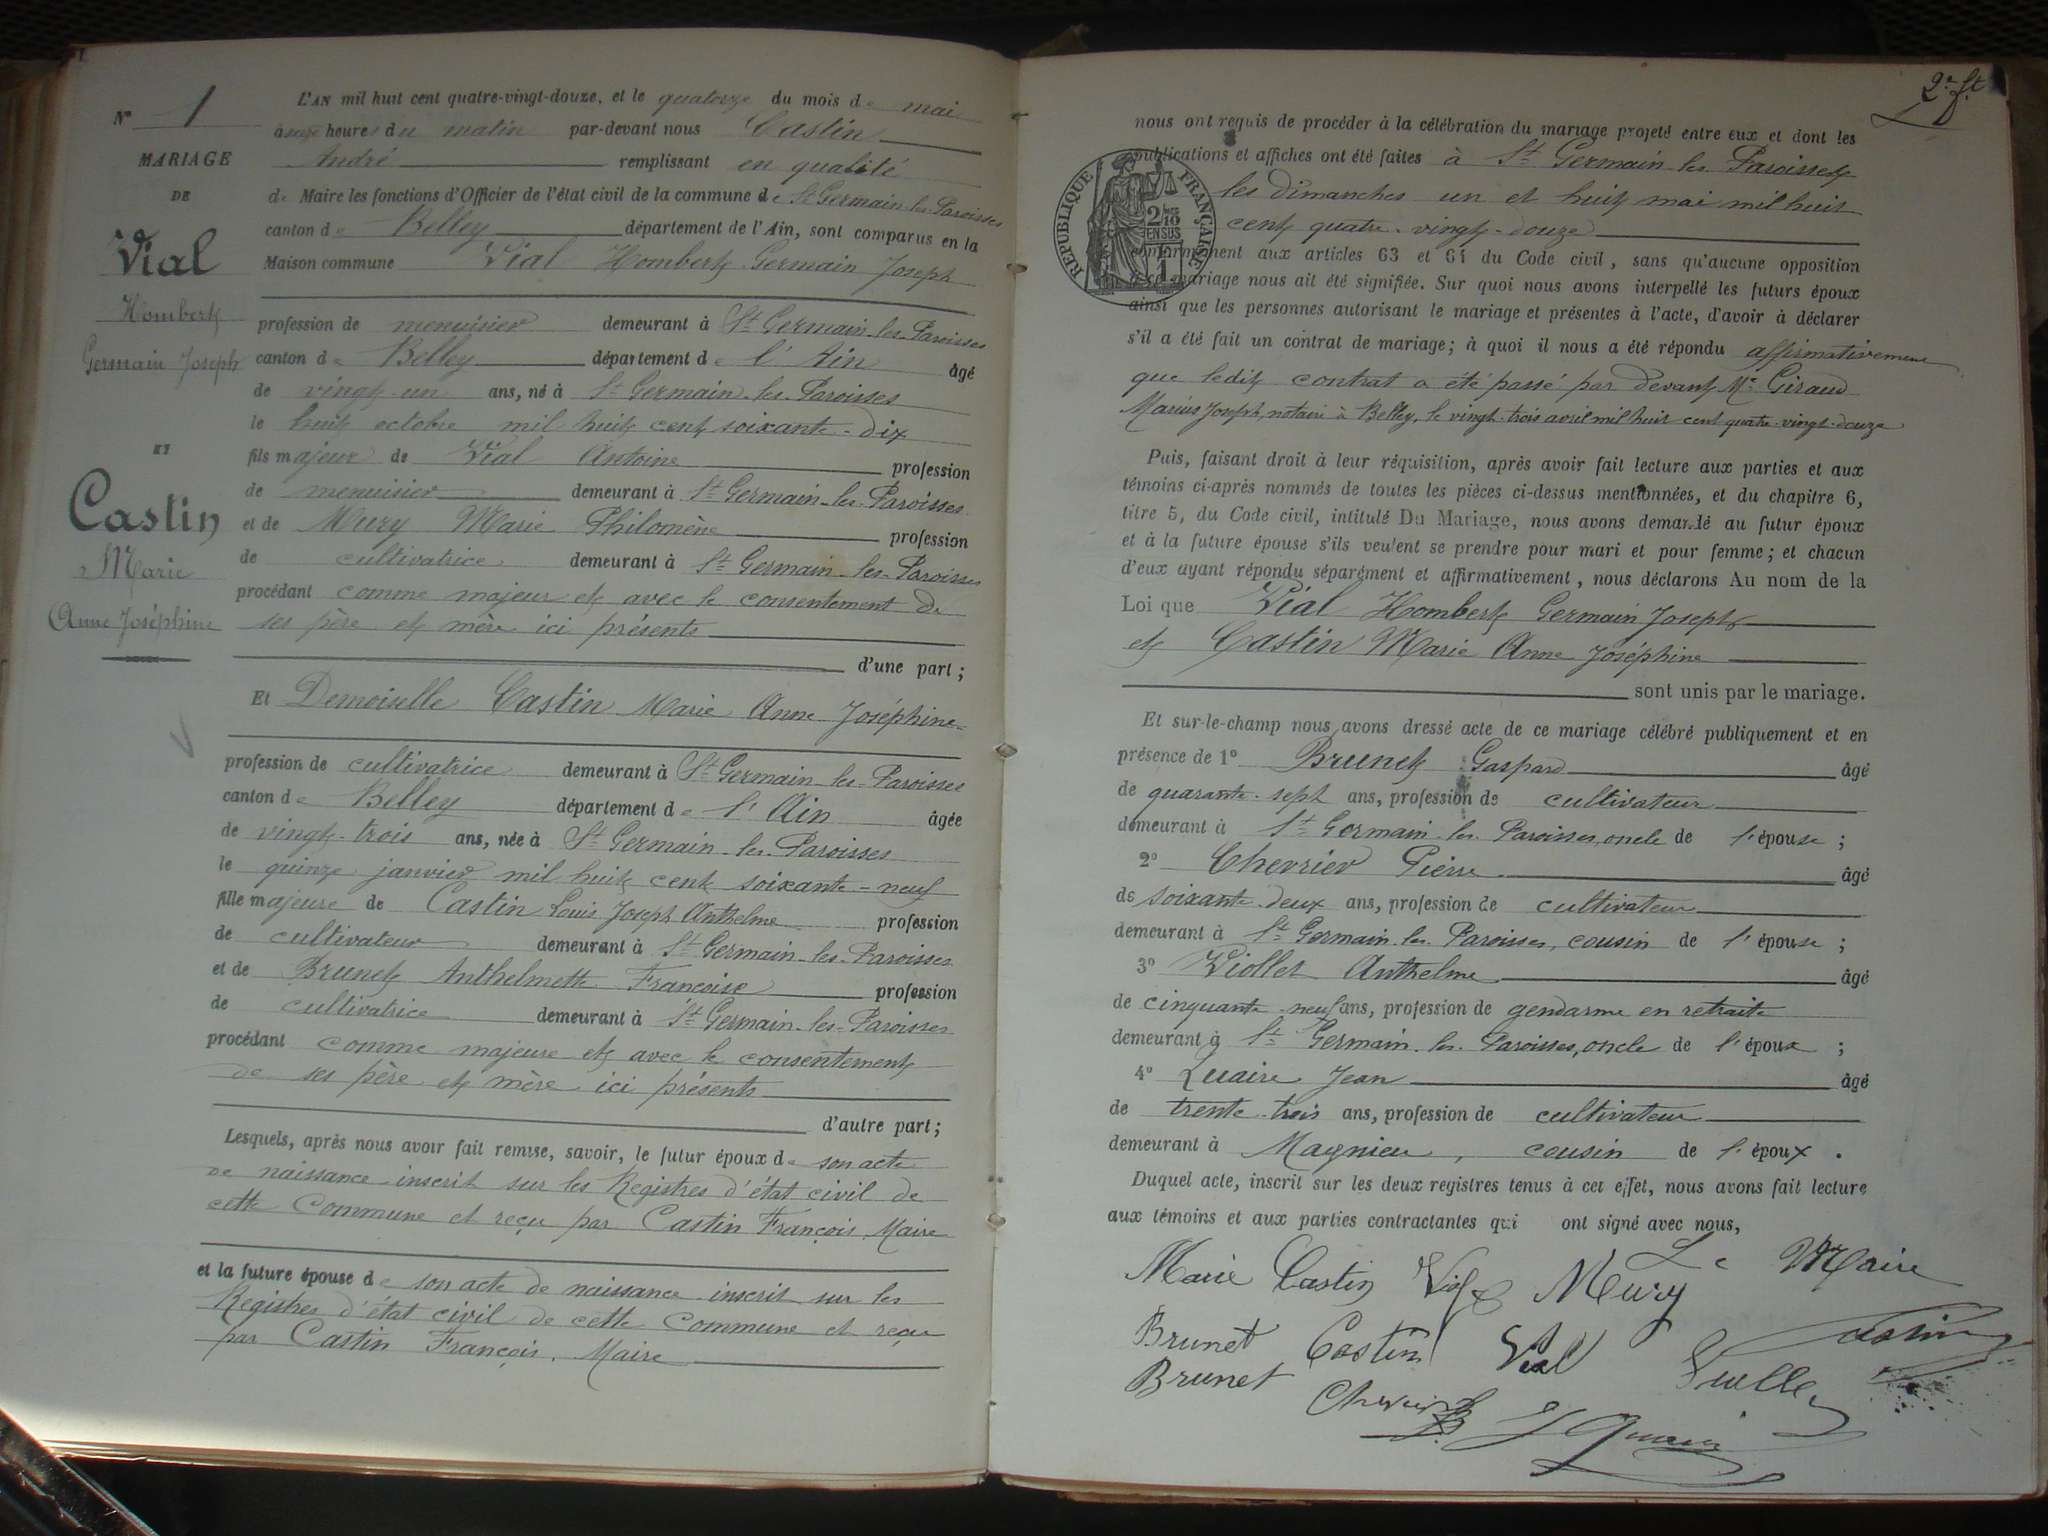 N° 1
MARIAGE
DE
Vial
Hombert
Germain Joseph
ET
Castin
Marie
Anne Joséphine
L'AN mil huit cent quatre-vingt-douze, et le quatorze du mois de mai
à onze heures du matin par-devant nous Castin
André remplissant en qualité
de Maire les fonctions d'Officier de l'état civil de la commune de St Germain-les-Paroisses
canton de Belley département de l'Ain, sont comparus en la
Maison commune Vial Hombert Germain Joseph
profession de menuisier demeurant à St Germain-les-Paroisses
canton de Belley département de l'Ain âgé
de vingt-un ans, né à St Germain-les-Paroisses
le huit octobre mil huit cent soixante-dix
fils majeur de Vial Antoine profession
de menuisier demeurant à St Germain-les-Paroisses
et de Mury Marie Philomène profession
de cultivatrice demeurant à St Germain-les-Paroisses
procédant comme majeur et avec le consentement de
ses père et mère ici présents
d'une part ;
Et Demoiselle Castin Marie Anne Joséphine
profession de cultivatrice demeurant à St Germain-les-Paroisses
canton de Belley département de l'Ain âgée
de vingt-trois ans, née à St Germain-les-Paroisses
le quinze janvier mil huit cent soixante-neuf
fille majeure de Castin Louis Joseph Anthelme profession
de cultivateur demeurant à St Germain-les-Paroisses
et de Brunet Anthelmette Françoise profession
de cultivatrice demeurant à St Germain-les-Paroisses
procédant comme majeure et avec le consentement
de ses père et mère ici présents
d'autre part ;
Lesquels, après nous avoir fait remise, savoir, le futur époux de son acte
de naissance inscrit sur les Registres d'état civil de
cette Commune et reçu par Castin François, Maire
et la future épouse de son acte de naissance inscrit sur les
Registres d'état civil de cette Commune et reçu
par Castin François, Maire
2e ft
nous ont requis de procéder à la célébration du mariage projeté entre eux et dont les
publications et affiches ont été faites à St Germain-les-Paroisses
les dimanches un et huit mai mil huit
cent quatre-vingt-douze
RÉPUBLIQUE FRANÇAISE
conformément aux articles 63 et 64 du Code civil, sans qu'aucune opposition
à ce mariage nous ait été signifiée. Sur quoi nous avons interpellé les futurs époux
ainsi que les personnes autorisant le mariage et présentes à l'acte, d'avoir à déclarer
s'il a été fait un contrat de mariage ; à quoi il nous a été répondu affirmativement
que ledit contrat a été passé par devant Me Giraud
Marius Joseph, notaire à Belley, le vingt-trois avril mil huit cent quatre-vingt-douze
Puis, faisant droit à leur réquisition, après avoir fait lecture aux parties et aux
témoins ci-après nommés de toutes les pièces ci-dessus mentionnées, et du chapitre 6,
titre 5, du Code civil, intitulé Du Mariage, nous avons demandé au futur époux
et à la future épouse s'ils veulent se prendre pour mari et pour femme ; et chacun
d'eux ayant répondu séparément et affirmativement, nous déclarons Au nom de la
Loi que Vial Hombert Germain Joseph
et Castin Marie Anne Joséphine
sont unis par le mariage.
Et sur-le-champ nous avons dressé acte de ce mariage célébré publiquement et en
présence de 1° Brunet Gaspard âgé
de quarante-sept ans, profession de cultivateur
demeurant à St Germain-les-Paroisses, oncle de l'épouse ;
2° Chevrier Pierre âgé
de soixante-deux ans, profession de cultivateur
demeurant à St Germain-les-Paroisses, cousin de l'épouse ;
3° Viollet Anthelme âgé
de cinquante-neuf ans, profession de gendarme en retraite
demeurant à St Germain-les-Paroisses, oncle de l'époux ;
4° Quaire Jean âgé
de trente-trois ans, profession de cultivateur
demeurant à Magnieu, cousin de l'époux.
Duquel acte, inscrit sur les deux registres tenus à cet effet, nous avons fait lecture
aux témoins et aux parties contractantes qui ont signé avec nous,
Marie Castin Vial Mury Le Maire
Brunet Castin Vial Castin
Brunet